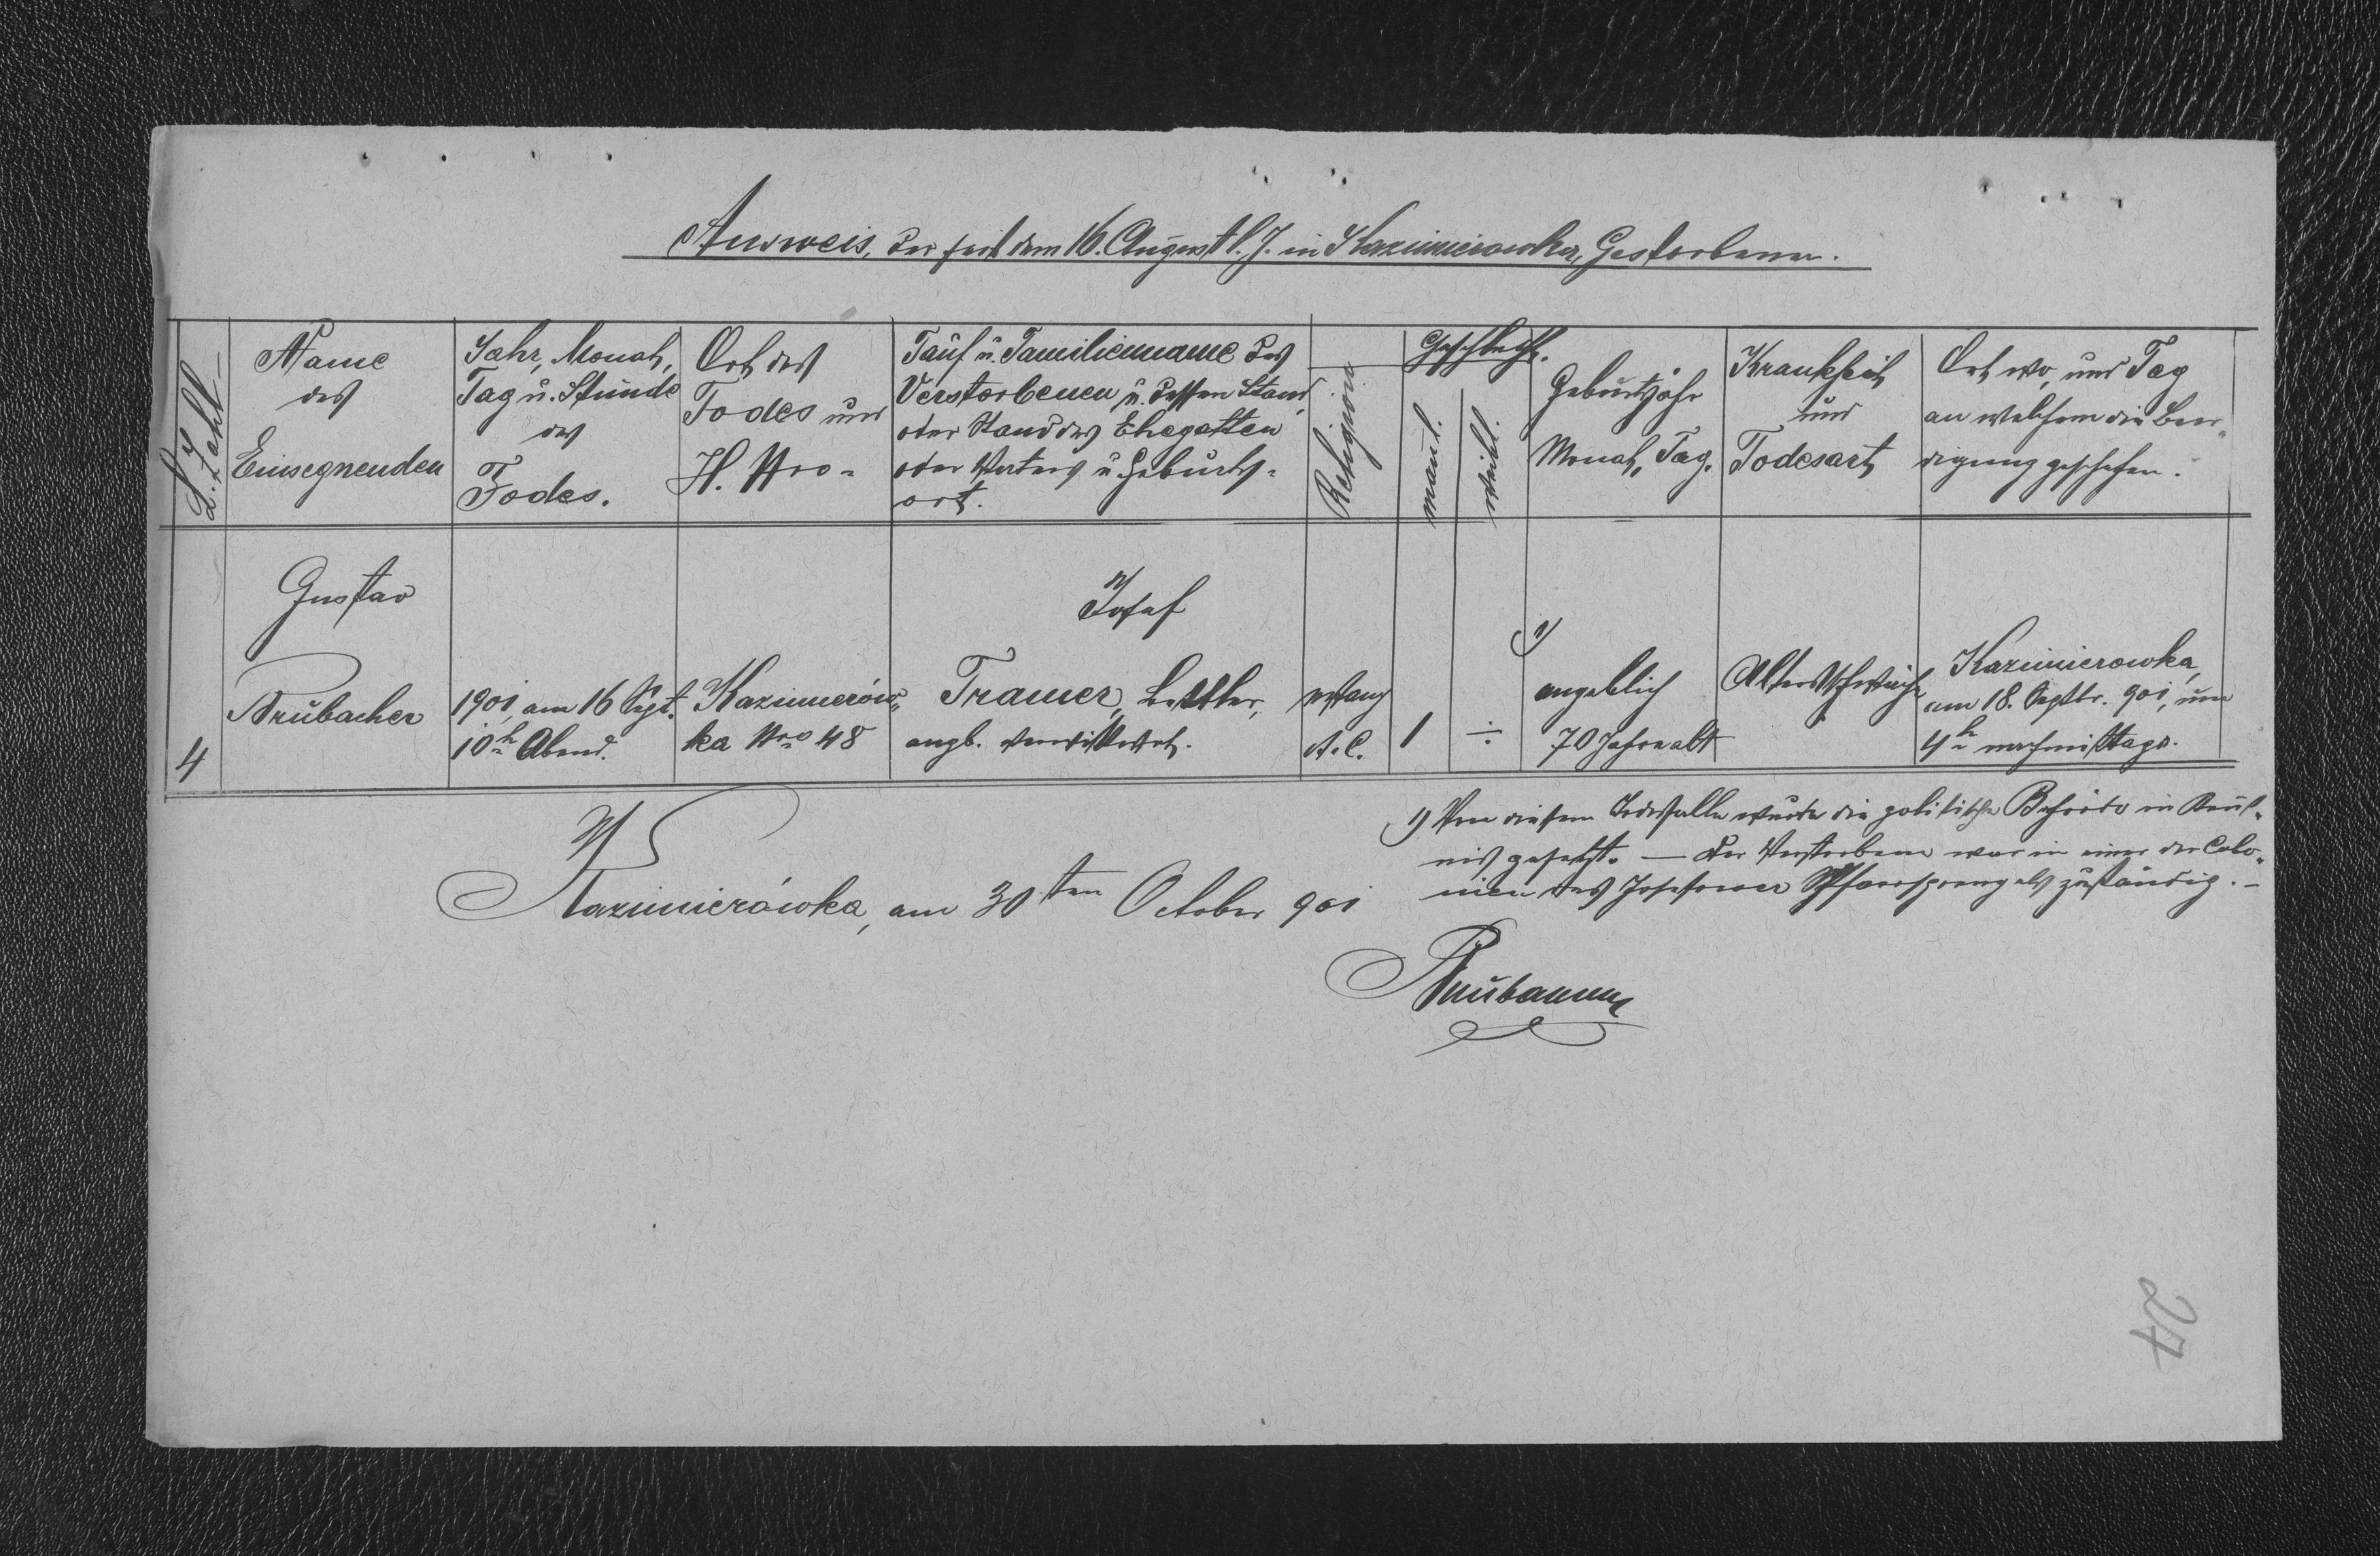 Ausweis, der seit dem 16. August l. J. in Kazimierowka, Gestorbenen.
L. Zahl
Name
des
Einsegnenden
Jahr, Monat,
Tag u. Stunde
des
Todes.
Ort des
Todes und
H. Nro.
Tauf u. Familienname des
Verstorbenen u. dessen Stand,
oder Stand des Ehegatten
oder Vaters u Geburts-
ort.
Religion
Geschlecht.
mänl.
weibl.
Geburtsjahr
Monat, Tag.
Krankheit
und
Todesart
Ort wo, und Tag
an welchem die Beer-
digung geschehen.
4
Gustav
Brubacher
1901, am 16 Sept.
10h Abend.
Kazimierów-
ka Nro 48
Josef
Tramer, Bettler,
angb. verwittwet.
evang
A. C.
1
÷
1)
angeblich
70 Jahre alt
Altersschwäche
Kazimierowka,
am 18. Septbr. 901, um
4h nachmittags.
Kazimierówka, am 30ten October 901
1) Von diesem Todesfalle wurde die politische Behörde in Kennt-
nis gesetzt. — Der Verstorbene war in einer der Colo-
nien des Josefower Pfarrsprengels zuständig. –
27